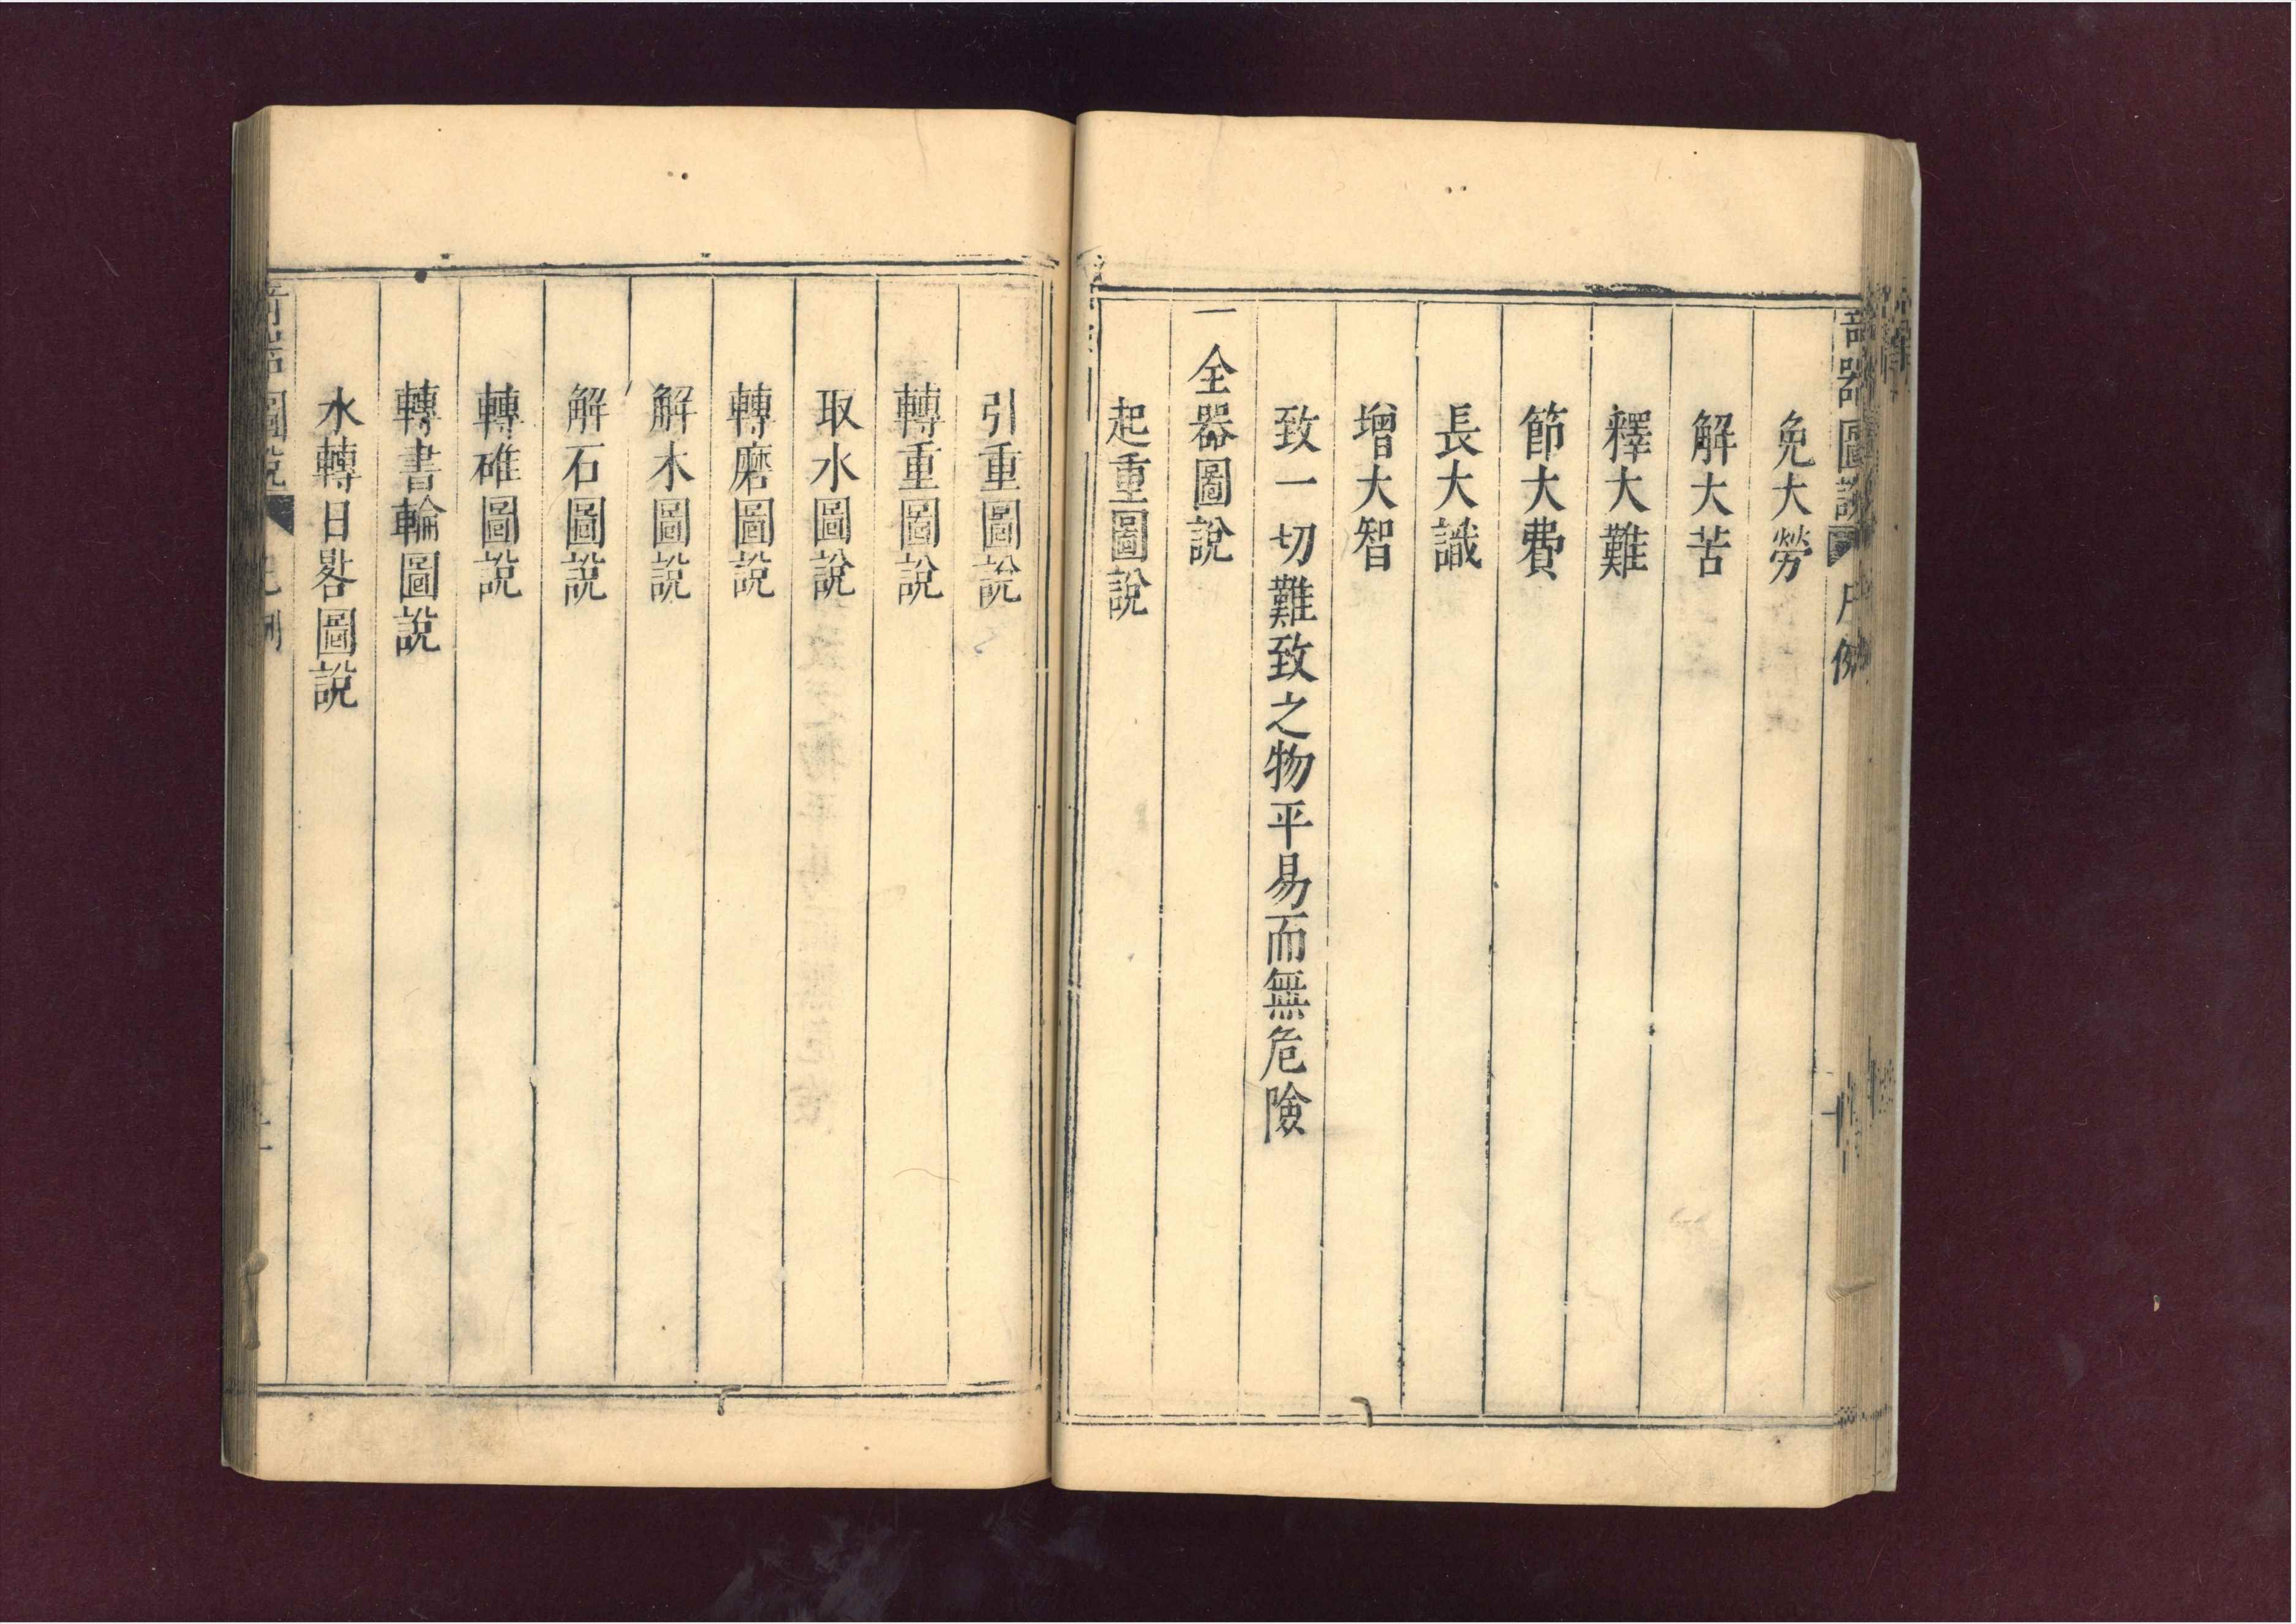 奇器圖說
免大勞
解大苦
釋大難
節大費
長大識
增大智
致一切難致之物平易而無危險
一全器圖說
起重圖說
引重圖說
轉重圖說
取水圖說
轉磨圖說
解木圖說
解石圖說
轉碓圖說
轉書輪圖說
水轉日晷圖說
圖說